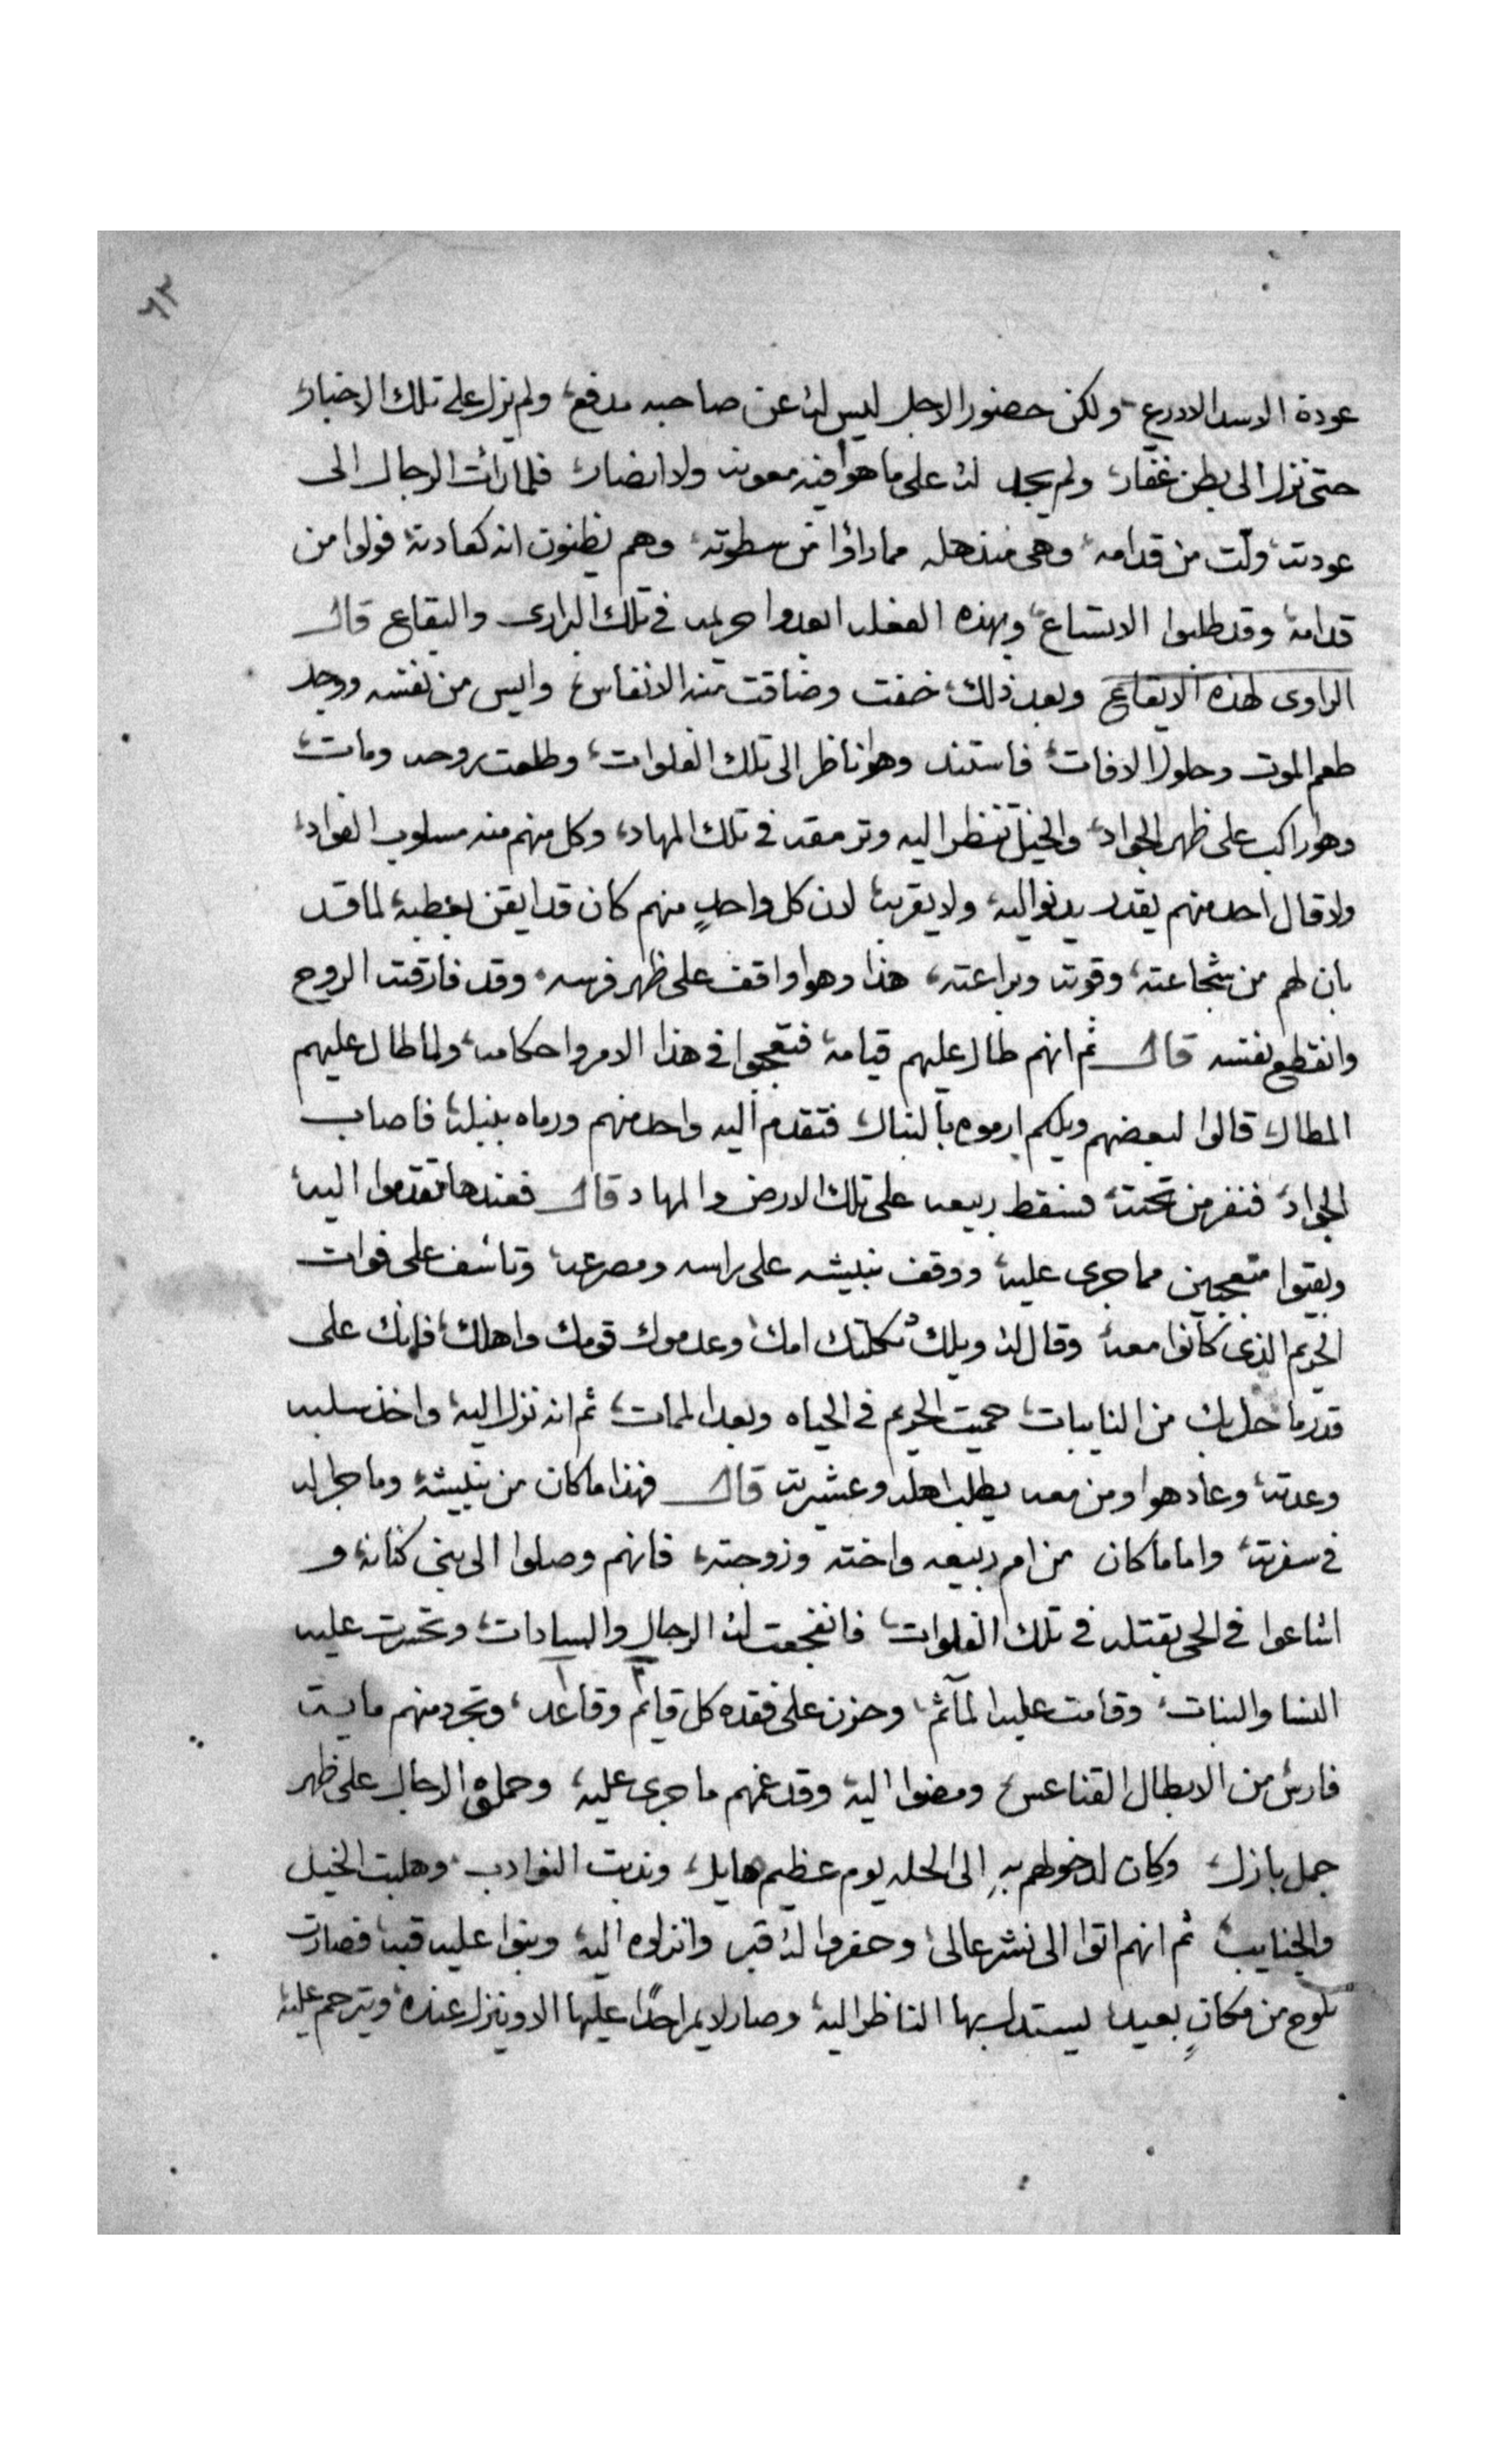 ٦٣
عودة الاسد الادرع ولكن حضور الاجل ليس له عن صاحبه مدفع ولم نزل على تلك الاخبار
حتى نزل الى بطن غفار ولم يجد له على ما هوا فيه معونه ولا انصار فلما رات الرجال الى
عودته ولّت من قدامه وهى منذهله مما راؤا من سطوته وهم يظنون انه كعادته فولوا من
قدامه وقد طلبوا الاتساع وبهذه الفعله ابعدوا حريمه فى تلك البرارى والبقاع قال
الراوى لهذه الايقاع وبعد ذلك خفت وضاقت منه الانفاس وايس من نفسه ووجد
طعم الموت وحلول الافات فاستند وهوا ناظر الى تلك الفلوات وطلعت روحه ومات
وهوا راكب على ظهر الجواد والخيل تنظر اليه وترمقه فى تلك المهاد وكل منهم منه مسلوب الفواد
ولا قال احد منهم يقدر يدنوا اليه ولا يقربه لان كل واحدٍ منهم كان قد ايقن بعطبه لما قد
بان لهم من شجاعته وقوته وبراعته هذا وهوا واقف على ظهر فرسه وقد فارقت الروح
وانقطع نفسه قال ثم انهم طال عليهم قيامه فتعجبوا فى هذا الامر واحكامه ولما طال عليهم
المطال قالوا لبعضهم ويلكم ارموه بالنبال فتقدم اليه واحد منهم ورماه بنبله فاصاب
الجواد فنفر من تحته فسقط ربيعه على تلك الارض والمهاد قال فعندها تقدموا اليه
وبقيوا متعجبين مما جرى عليه ووقف نبيشه على راسه ومصرعه وتاسف على فوات
الحريم الذى كانوا معه وقال له ويلك ثكلتك امك وعدموك قومك واهلك فانك على
قدر ما حل بك من النايبات حميت الحريم فى الحياه وبعد الممات ثم انه نزل اليه واخذ سلبه
وعدته وعاد هوا ومن معه يطلب اهله وعشيرته قال فهذا ما كان من نبيشه وما جرا له
فى سفرته واما ما كان من ام ربيعه واخته وزوجته فانهم وصلوا الى بنى كنانه و
اشاعوا فى الحى بقتله فى تلك الفلوات فانفجعت له الرجال والسادات وتحسرت عليه
النسا والبنات وقامت عليه المآثم وحزن على فقده كل قايم وقاعد وتجرد منهم مايت
فارس من الابطال القناعس ومضوا اليه وقد غمهم ما جرى عليه وحملوه الرجال على ظهر
جمل بازل وكان لدخولهم بهِ الى الحله يوم عظيم هايل وندبت النوادب وهلبت الخيل
والجنايب ثم انهم اتوا الى نشر عالى وحفروا له قبر وانزلوه اليه وبنوا عليه قبه فصارت
تلوح من مكانٍ بعيد ليستدل بها الناظر اليه وصار لا يمر احدًا عليها الا وينزل عنده ويترحم عليه